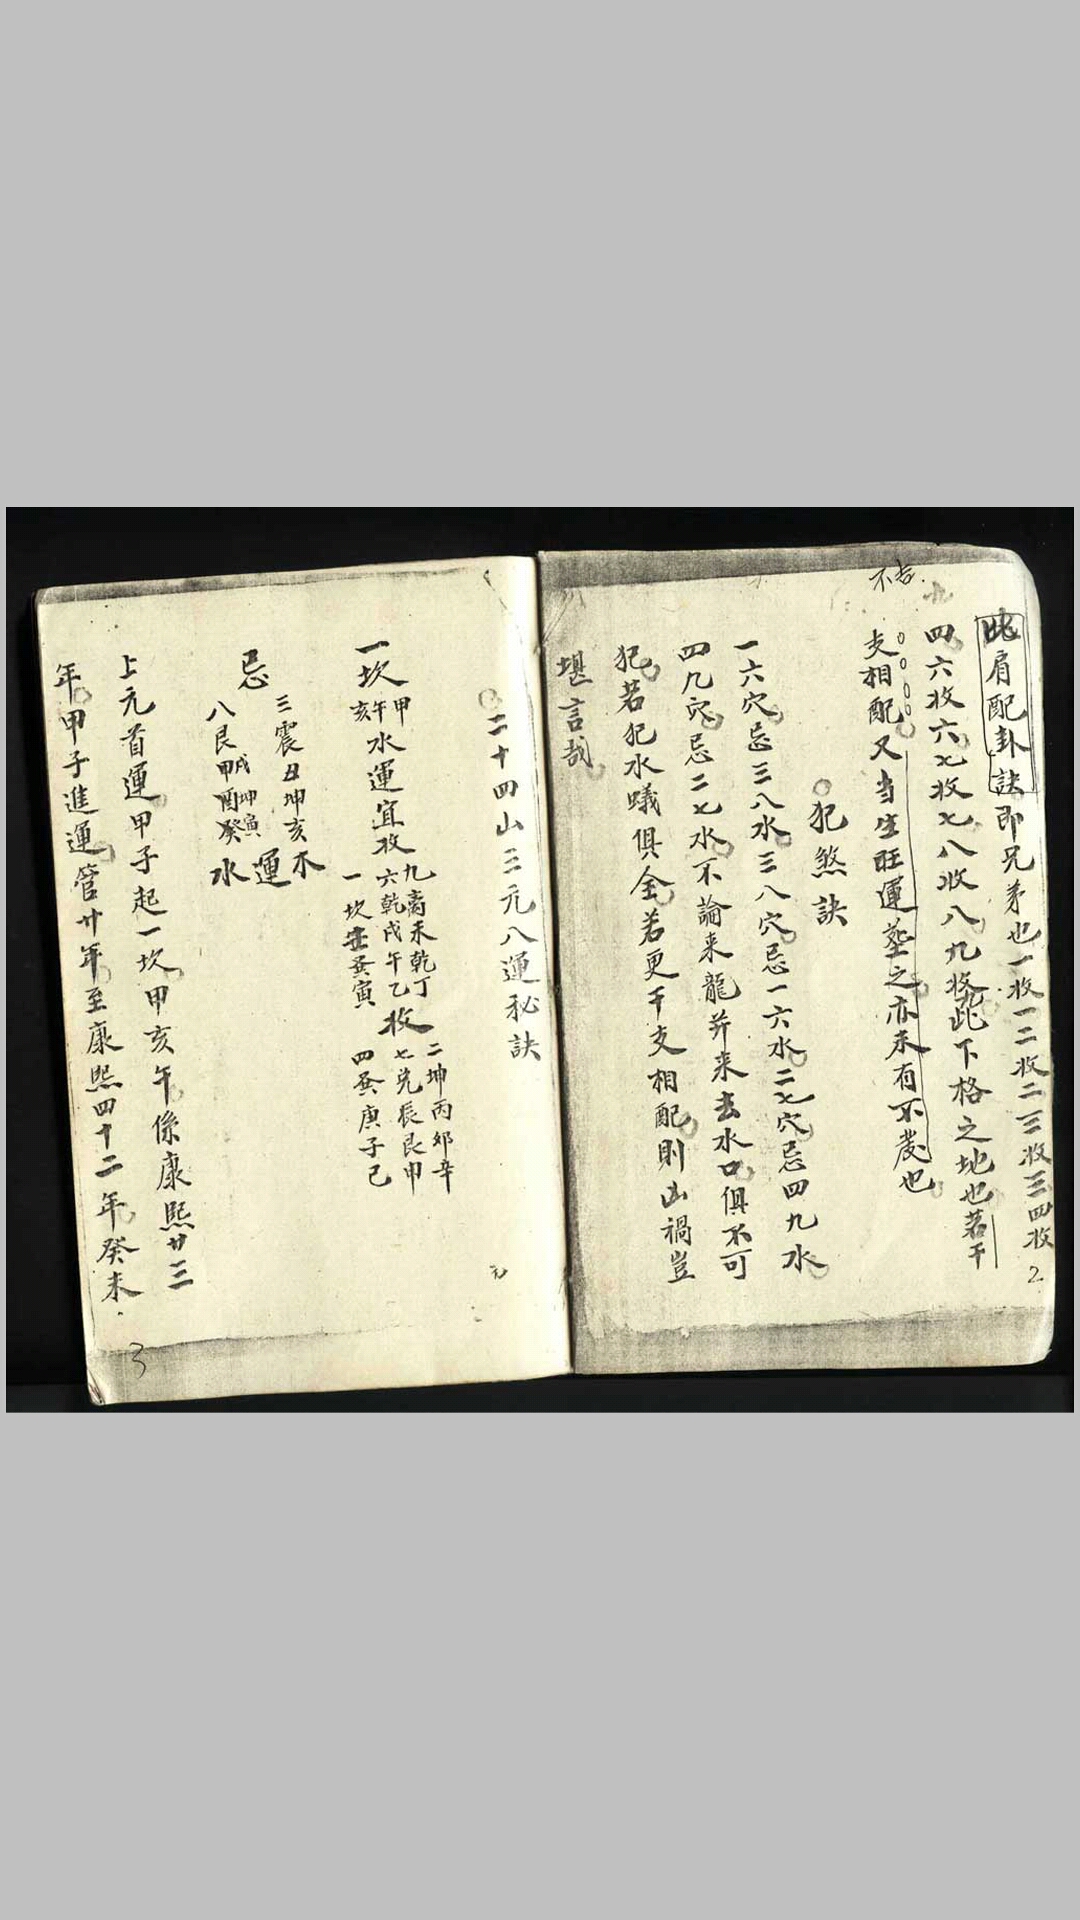 不吉
比肩配卦訣即兄弟也一收一二收二三收三四收
四六收六七收七八收八九收九此下格之地也若干
支相配又当生旺運塟之亦未有不發也
犯煞訣
一六穴忌三八水三八穴忌一六水二七穴忌四九水
四九穴忌二七水不論来龍并来去水口俱不可
犯若犯水蟻俱全若更干支相配則凶禍豈
堪言哉
2
二十四山三元八運秘訣
一坎甲午亥水運宜收九离未乾丁六乾戌午乙一坎壬巽寅收二坤丙卯辛七兑辰艮申四巽庚子己
忌三震丑坤亥八艮甲酉癸戌坤寅木運水
上元首運甲子起一坎甲亥午係康熙廿三
年甲子進運管廿年至康熙四十二年癸未
元
3